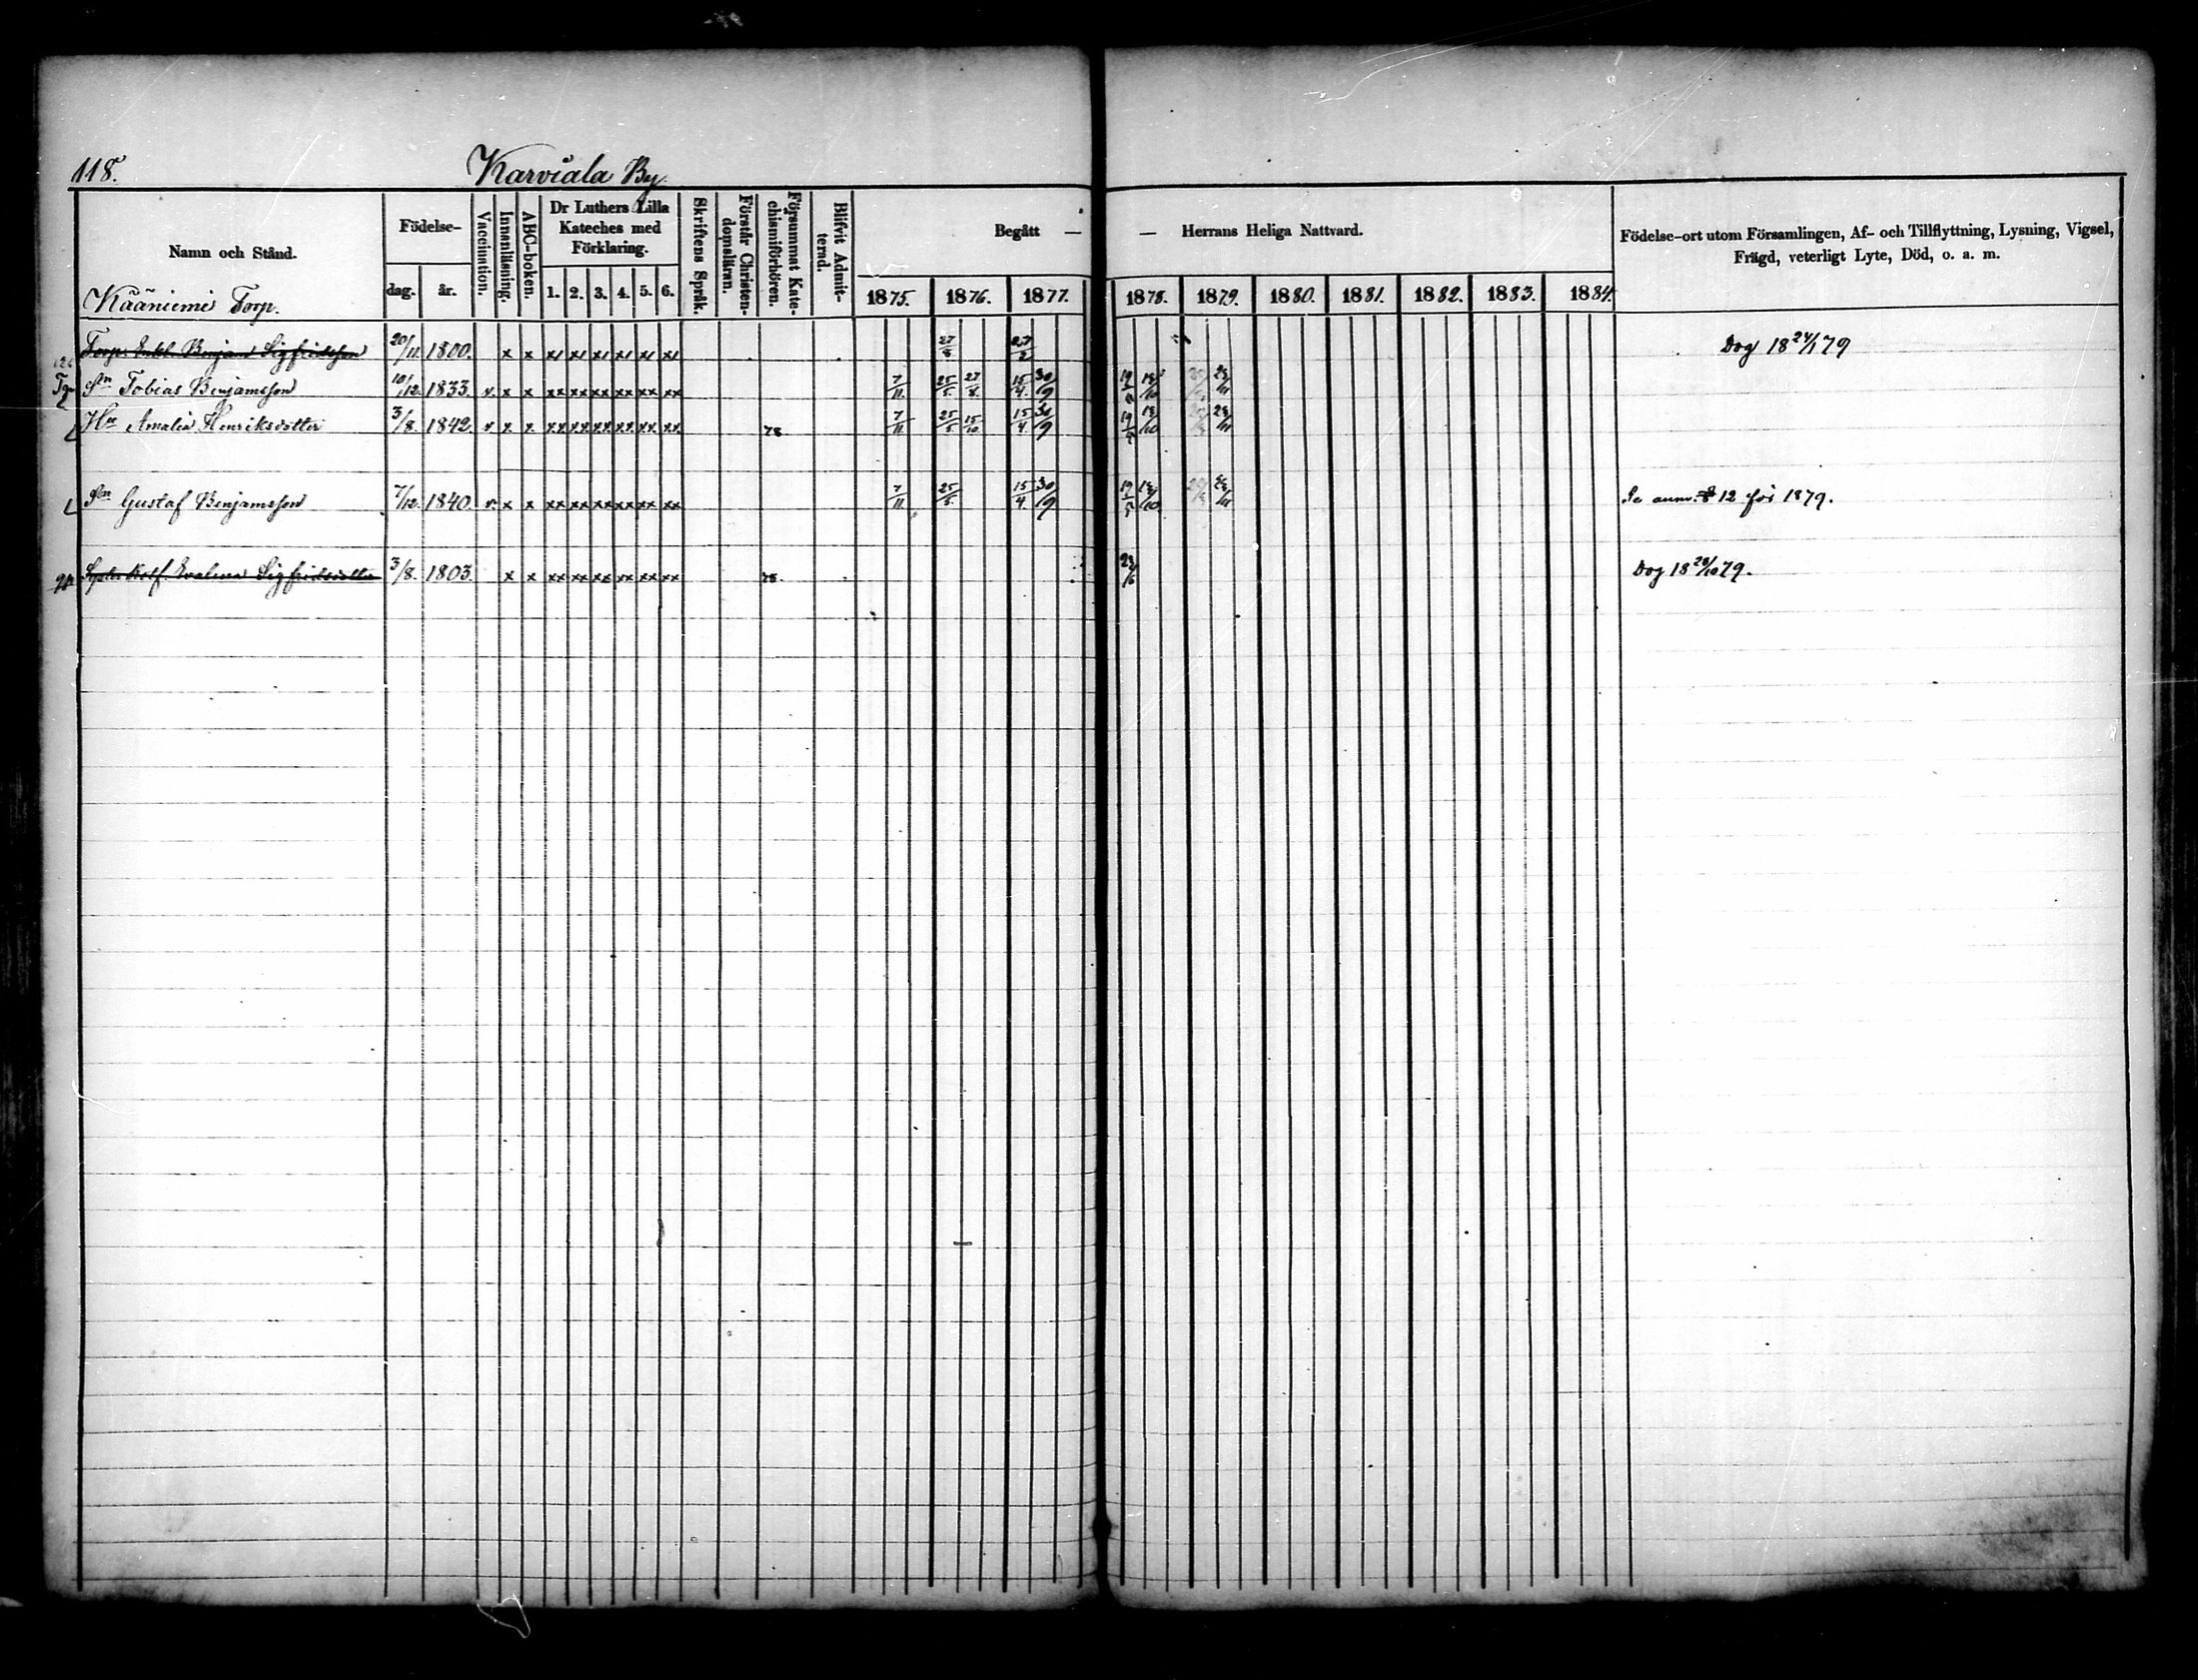 118. Karviala By.
Namn och Stånd. Födelse- dag. år. Vaccination. Innanläsning. ABC-boken. Dr Luthers Lilla Kateches med Förklaring. 1. 2. 3. 4. 5. 6. Skriftens Språk. Förstår Christendomsläran. Försummat Katechismiförhören. Blifvit Admitterad. Begått — — Herrans Heliga Nattvard. Födelse-ort utom Församlingen, Af- och Tillflyttning, Lysning, Vigsel, Frägd, veterligt Lyte, Död, o. a. m.
Kääniemi Torp. 1875. 1876. 1877. 1878. 1879. 1880. 1881. 1882. 1883. 1884.
Torp. Enkl. Benjam Sigfridsson 20/11. 1800. x x xx xx xx xx xx xx 27/8 27/2 Dog 18 24/1 79
Sn Tobias Benjamsson 10/12. 1833. v. x x xx xx xx xx xx xx 7/11 25/5 27/8 15/4 30/9
Hu Amalia Henriksdotter 3/8. 1842. v x x xx xx xx xx xx xx 78 7/11 25/5 15/10 15/4 30/9
Sn Gustaf Benjamsson 7/12. 1840. v. x x xx xx xx xx xx xx 7/11 25/5 15/4 30/9 Se anm. 12 för 1879.
Evalina Sigfridsdotter 3/8. 1803. x x xx xx xx xx xx xx 78. 23/6 Dog 18 20/10 79.